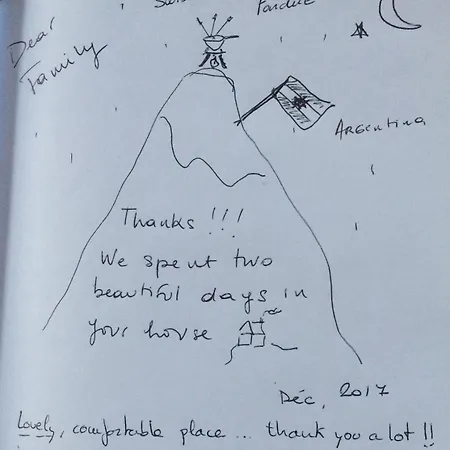 Dear
Family
ARGENTINA
Thanks !!!
We spent two
beautiful days in
your house
Déc, 2017
Lovely, comfortable place ... thank you a lot !!